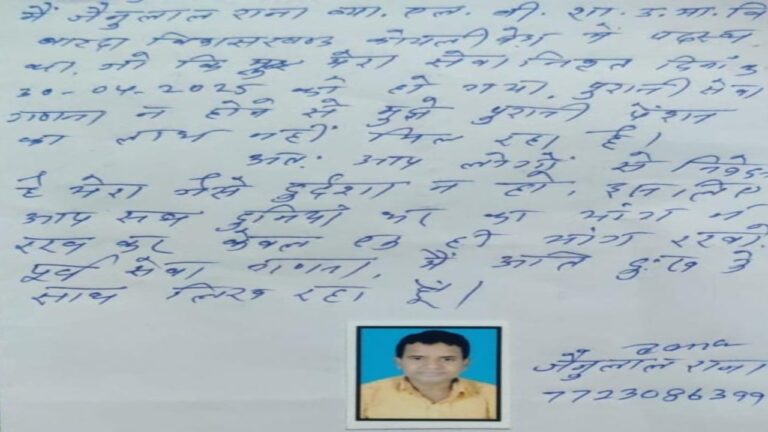 मैं जैनुलाल राना व्या. एल. बी. शा. उ. मा. वि
बारदा विकासखण्ड कोयलीबेड़ा में पदस्थ
था. जो कि मेरा सेवा निवृत दिनांक
30-04-2025 को हो गया. पुरानी सेवा
गणना न होने से मुझे पुरानी पेंशन
का लाभ नहीं मिल रहा है।
अत: आप लोगों से निवेदन
है मेरा जैसे दुर्दशा न हो, इसलिए
आप सब दुनियाँ भर का मांग न
रख कर केवल एक ही मांग रखो.
पूर्व सेवा गणना, मैं अति दु:ख के
साथ लिख रहा हूँ।
Rana
जैनुलाल राना
7723086399